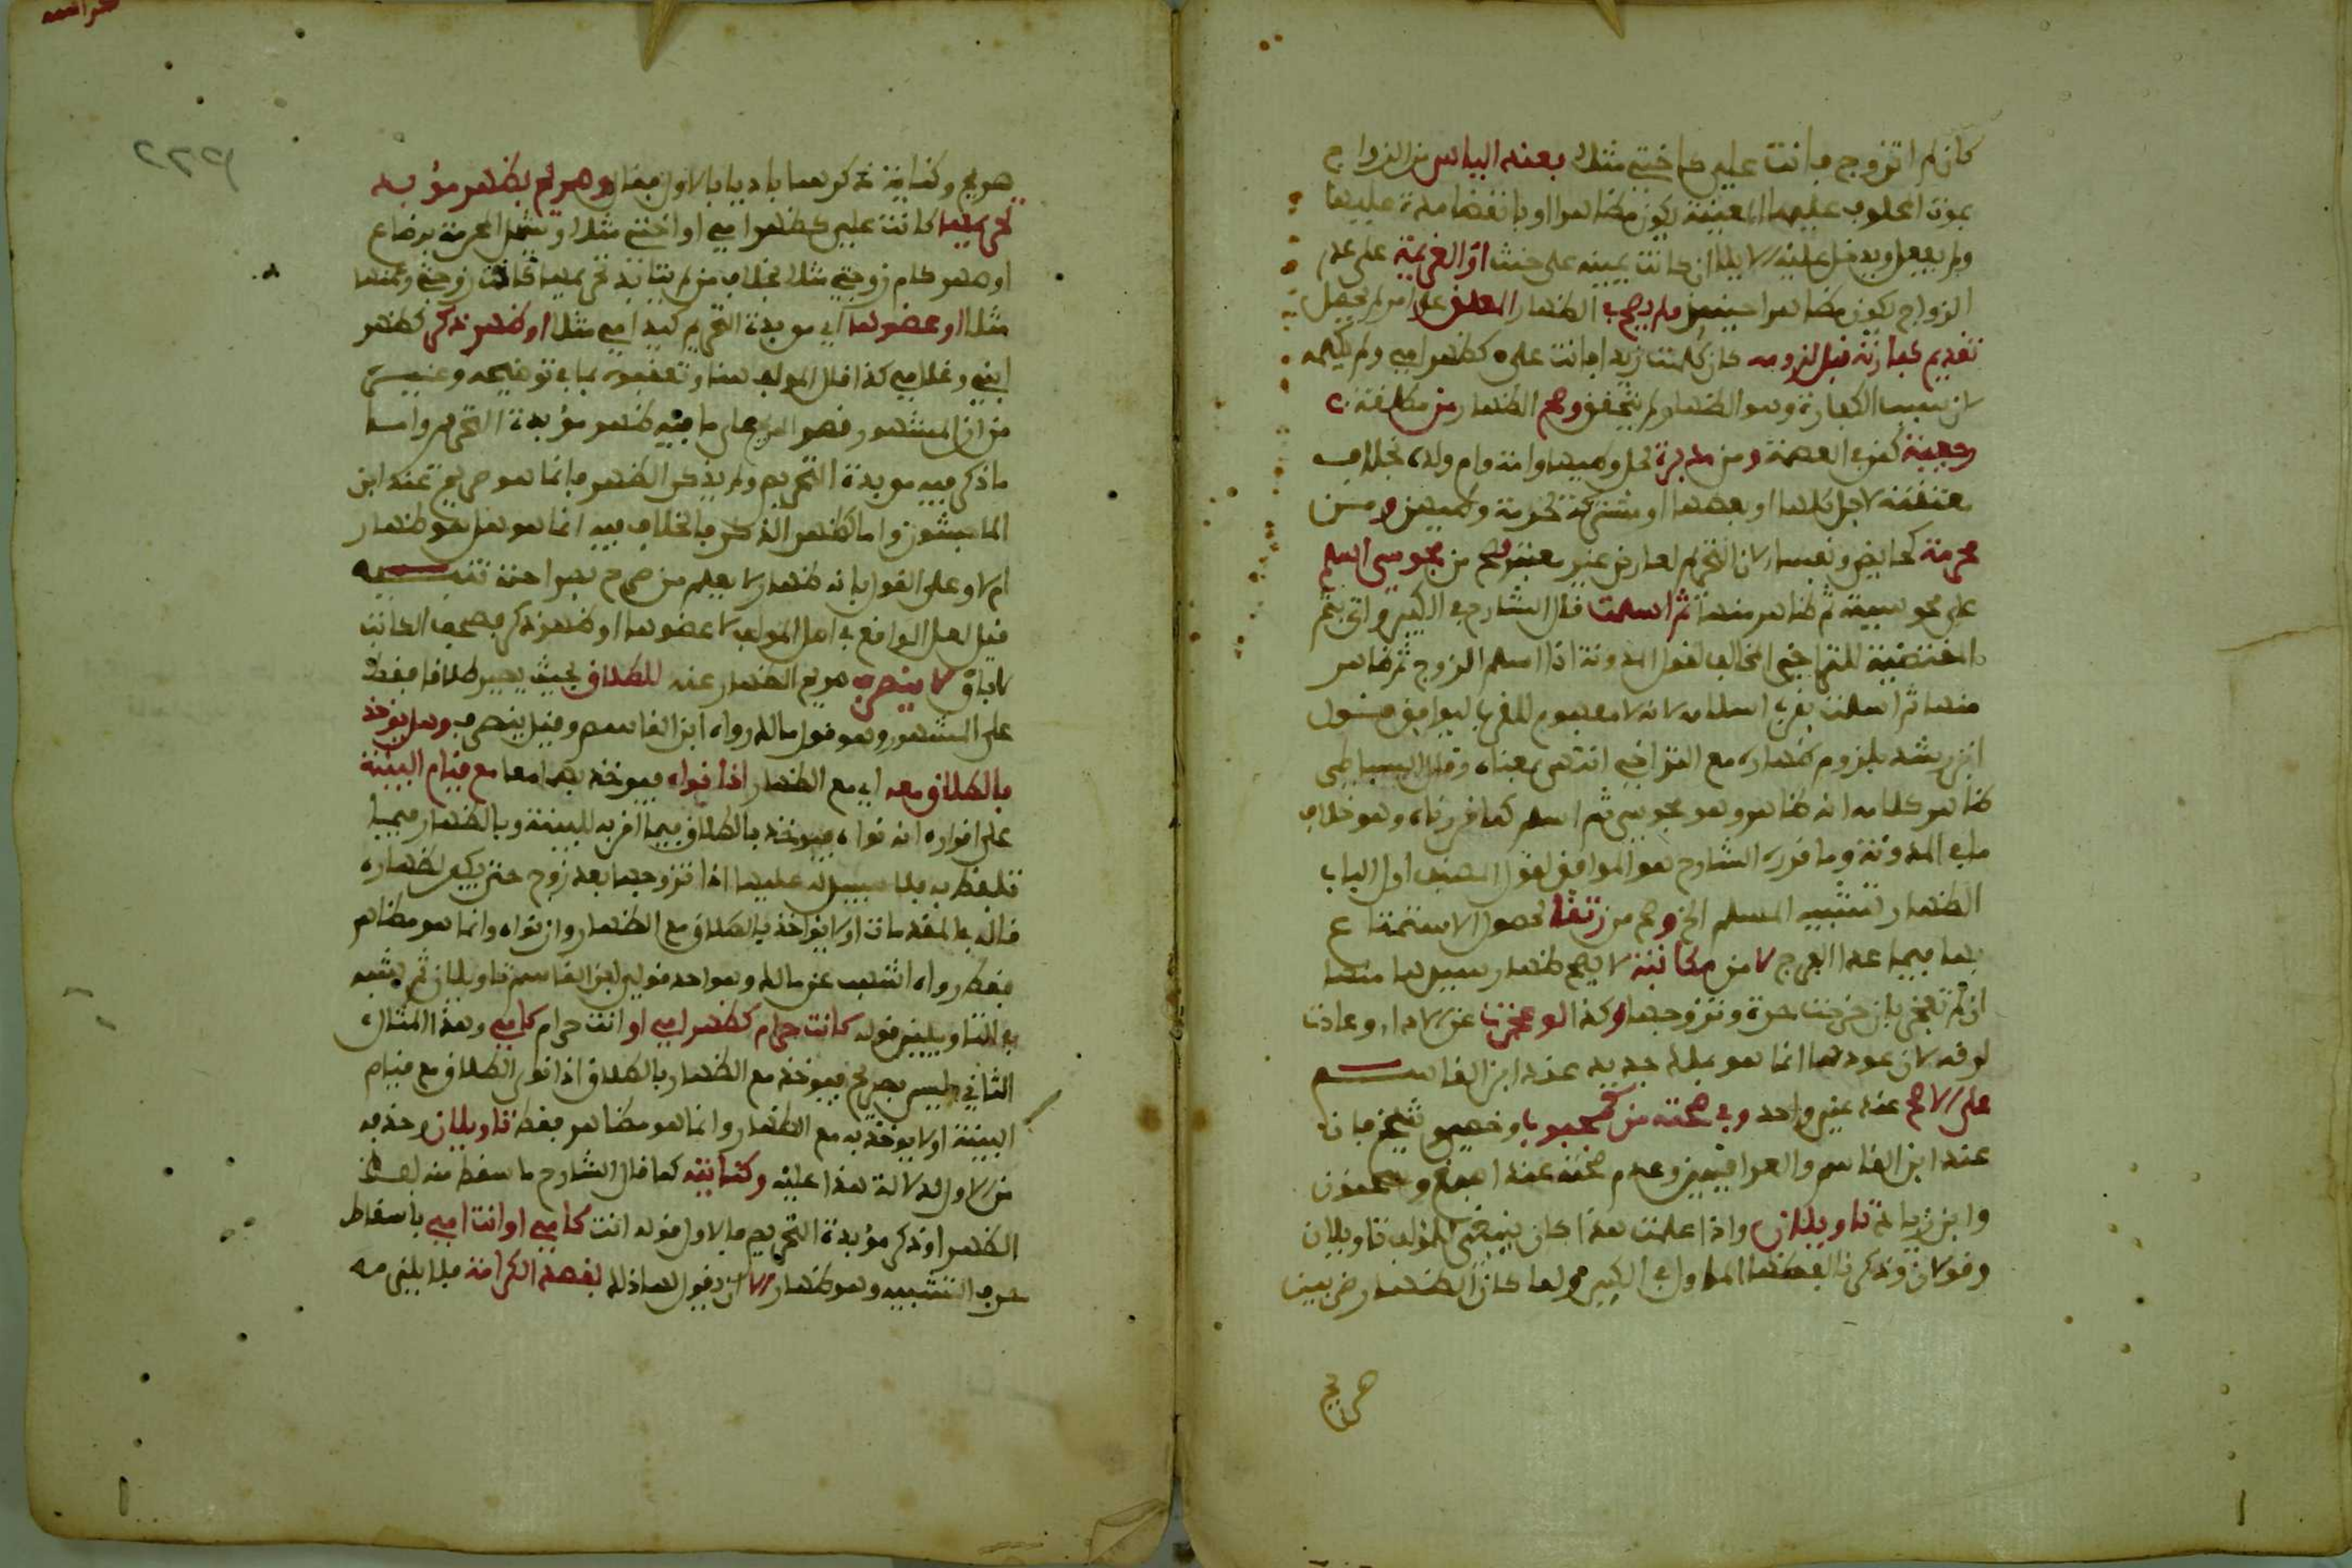 كان لم اتزوج فانت علي كاختي مثلا بعند الياس من الزواج
بموت المحلوف عليها المعينة يكون مظاهرا او بانقضا مدة عليها
ولم يفعل ويدخل عليه الايلا ان كانت يمينه على حنث او العزيمة على عدم
الزواج يكون مظاهرا حينئذ ولم يصح في الظهار المعلق على امر لم يحصل
تقديم كفارته قبل لزومه كان كلمت زيدا فانت علي كظهر امي ولم يكلمه
لان سبب الكفارة وهو الظهار لم يتحقق وصح الظهار من مطلقة
رجعية كمن في العصمة ومن مدبرة لحل وطيها وامة وام ولد بخلاف
معتقة لاجل كلها او بعضها او مشتركة لحرمة وطيهن ومن
محرمة كحايض ونفسا لان التحريم لعارض غير معتبر وصح من مجوسي اسلم
على مجوسية ثم ظاهر منها ثم اسلمت قال الشارح في الكبير واتى بثم
المقتضية للتراخي المخالف لقول المدونة اذا اسلم الزوج ثم ظاهر
منها ثم اسلمت بقرب اسلامه لانه لا مفهوم للقرب ليوافق قول
ابن رشد بلزوم ظهاره مع التراخي انتهى بمعناه وقال البساطي
ظاهر كلامه انه ظاهر وهو مجوسي ثم اسلم كما قررناه وهو خلاف
ما في المدونة وما قرره الشارح هو الموافق لقول المصنف اول الباب
الظهار تشبيه المسلم الخ وصح من رتقا لحصول الاستمتاع
بها فيما عدا الفرج لا من مكاتبة لا يصح ظهار سيدها منها
ان لم تعجز بان خرجت حرة وتزوجها وكذا لو عجزت عن الادا وعادت
لرقه لان عودها انما هو بملك جديد عند ابن القاسم
على الاصح عند غير واحد وفي صحته من كمجبوب وخصي وشيخ فان
عند ابن القاسم والعراقيين وعدم صحته عند اصبغ وسحنون
وابن زياد تاويلان واذا علمت هذا كان ينبغي للمؤلف تاويلان
وقولان وذكرنا لفظها الماول في الكبير ولما كان الظهار ضربين
صريح
صريح وكناية ذكرهما باديا بالاول فقال وصريحه بظهر مؤبد
تحريمها كانت علي كظهر امي او اختي مثلا ويشمل المحرمة برضاع
او صهر كام زوجتي مثلا بخلاف من لم يتابد تحريمها كاخت زوجتي وعمتها
مثلا او عضوها اي مويدة التحريم كيد امي مثلا او ظهر ذكر كظهر
ابني وغلامي كذا قال المؤلف هنا وتعقبوه بما في توضيحه وغيره
من ان المشهور قصر الصريح على ما فيه ظهر مؤبدة التحريم واما
ما ذكر فيه مويدة التحريم ولم يذكر الظهر فانما هو صريح عند ابن
الماجشون واما كظهر الذكر فالخلاف فيه انما هو هل هو ظهار
ام لا وعلى القول بانه ظهار لا يعلم من صرح بصراحته تنبيه
قيل لعل الواقع في اصل المؤلف لا عضوها او ظهر ذكر فصحف الكاتب
لا باو لا ينصرف صريح الظهار عنه للطلاق بحيث يصير طلاقا فقط
على المشهور وهو قول مالك رواه ابن القاسم وقيل ينصرف وهل يؤخذ
بالطلاق معه اي مع الظهار اذا نواه فيؤخذ بهما معا مع قيام البينة
على اقراره انه نواه فيؤخذ بالطلاق فيما اقر به للبينة وبالظهار فيما
تلفظ به فلا سبيل له عليها اذا تزوجها بعد زوج حتى يكفر لظهاره
قاله في المقدمات او لا يؤاخذ بالطلاق مع الظهار وان نواه وانما هو مظاهر
فقط رواه اشهب عن مالك وهو احد قولي ابن القاسم تاويلان ثم شبه
في التاويلين قوله كانت حرام كظهر امي او انت حرام كامي وهذا المثال
الثاني ليس بصريح فيؤخذ مع الظهار بالطلاق اذا نوى الطلاق مع قيام
البينة او لا يؤخذ به مع الظهار وانما هو مظاهر فقط تاويلان وحذفه
من الاول لدلالة هذا عليه وكنايته كما قال الشارح ما سقط منه لفظ
الظهر او ذكر مؤبدة التحريم فالاول قوله انت كامي او انت امي باسقاط
حرف التشبيه وهو ظهار الا ان يقول لها ذلك لقصد الكرامة فلا يلزمه